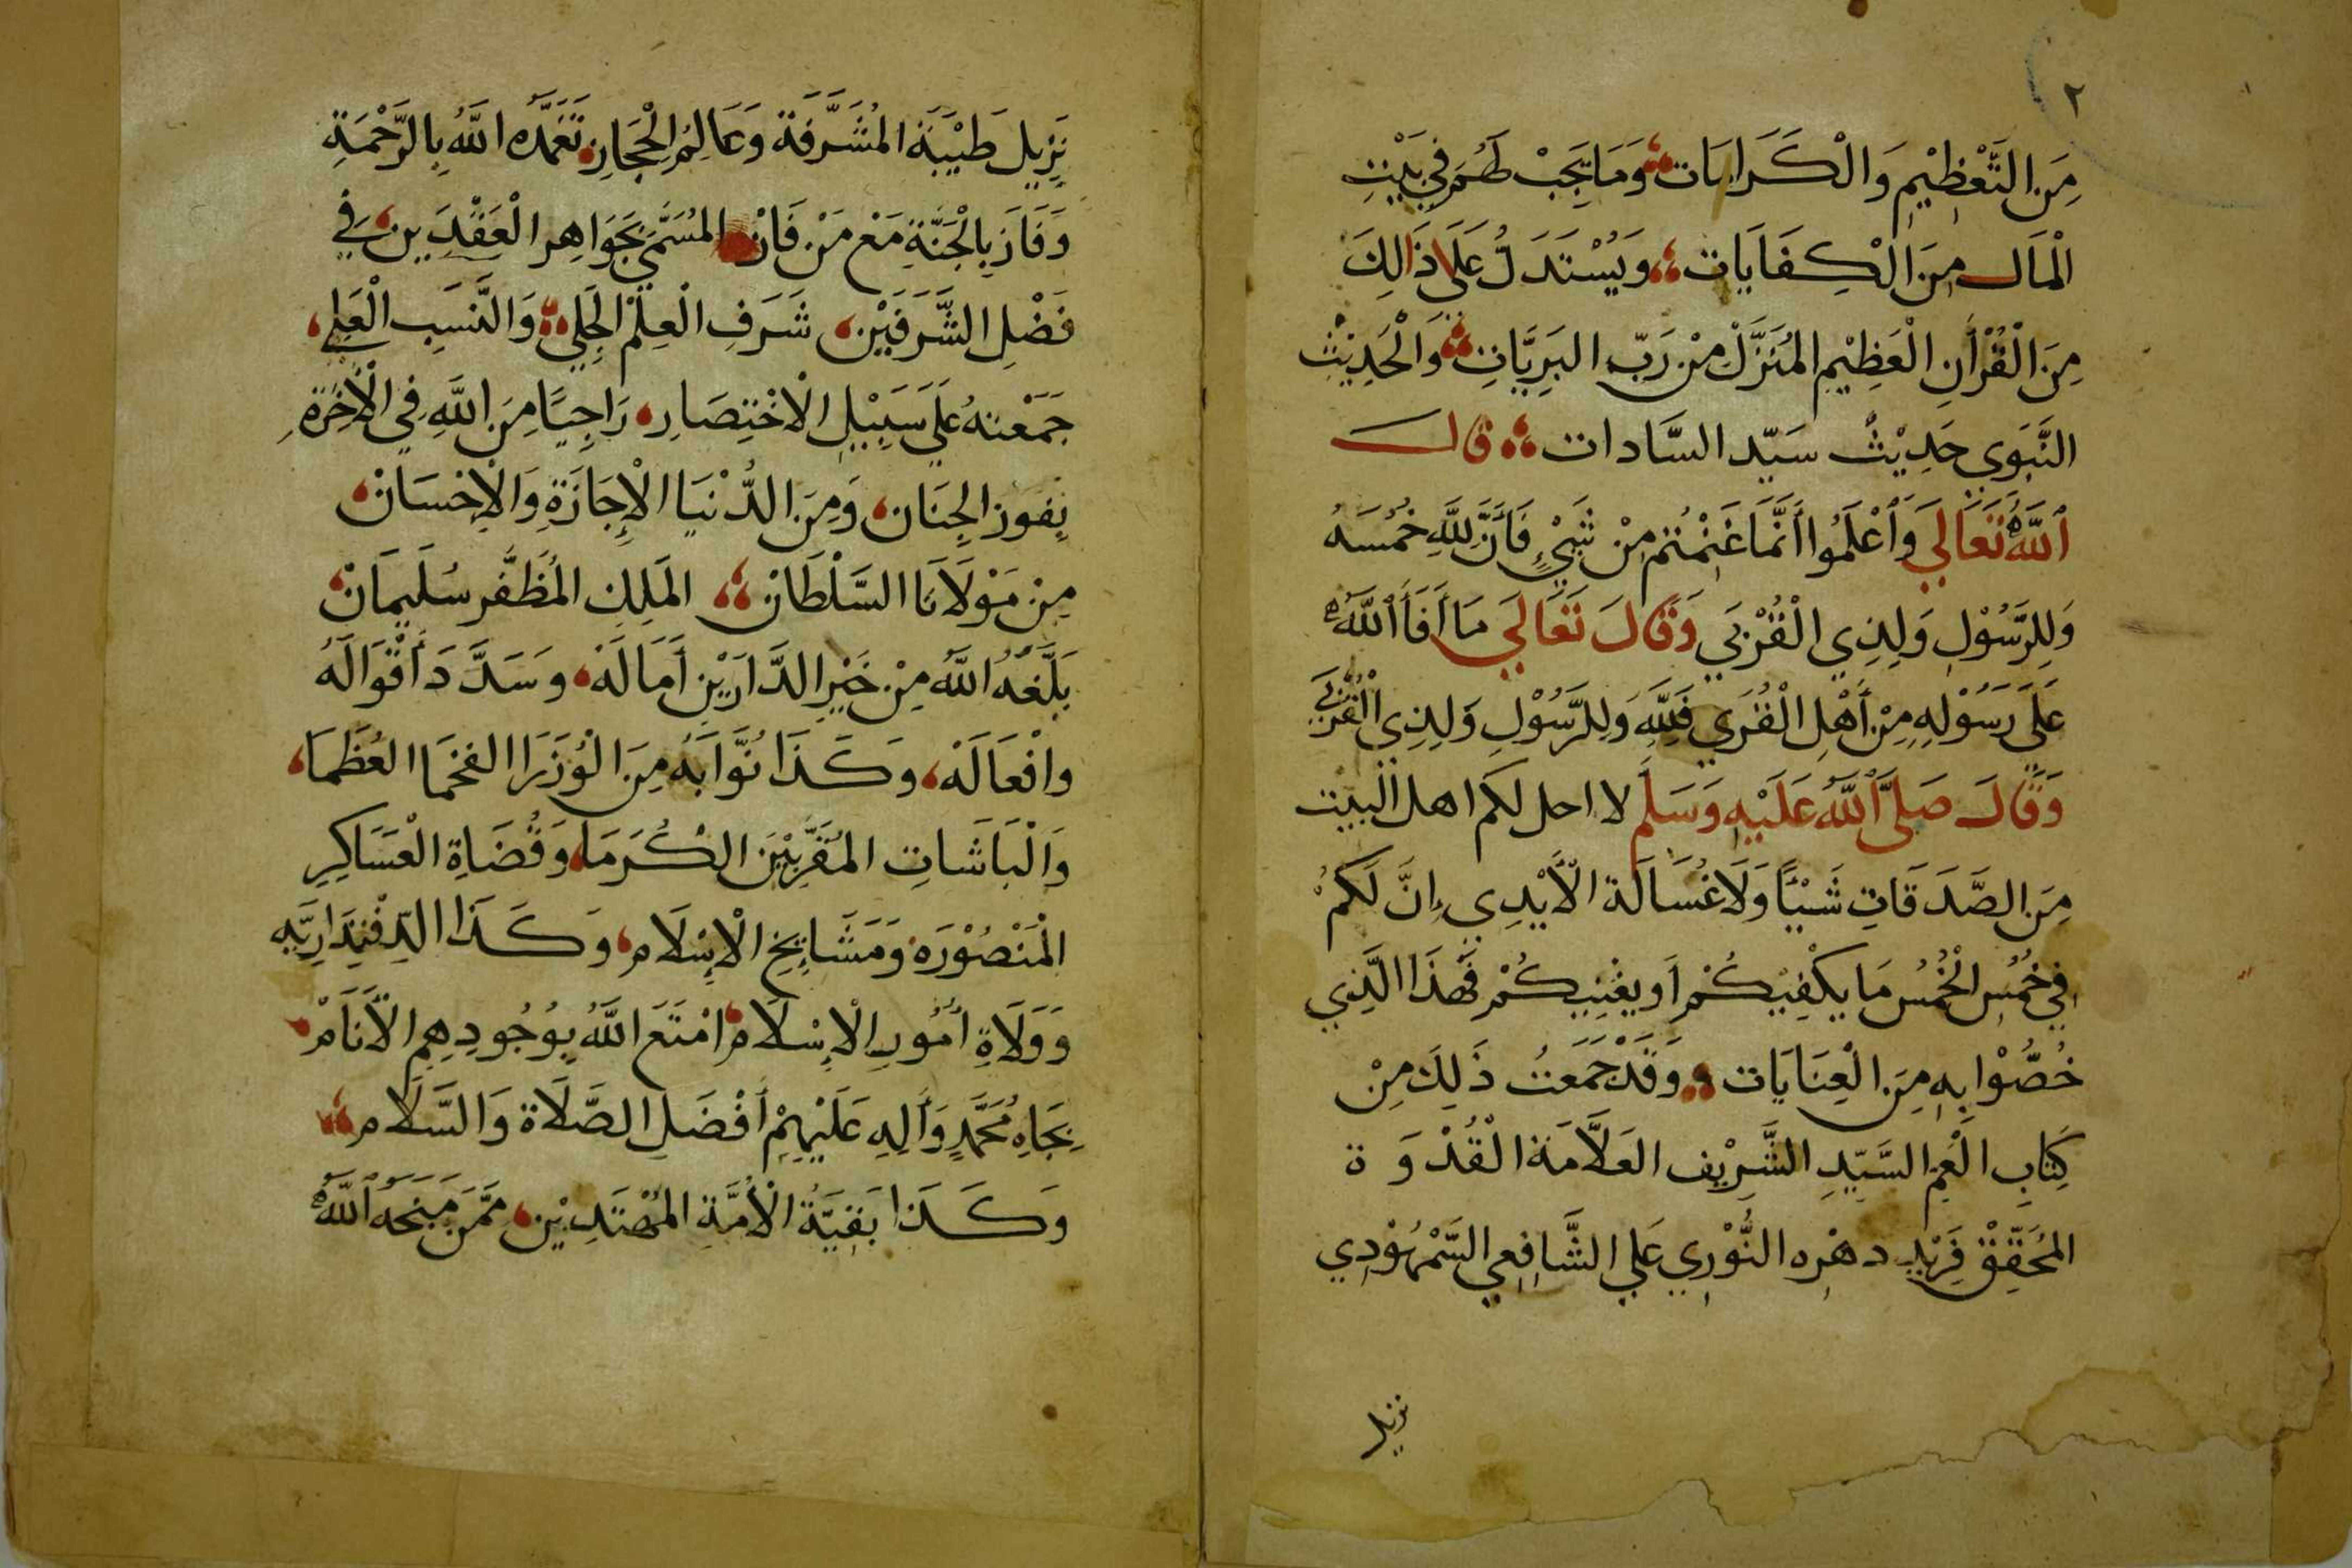 ٢
مِنَ التَّعْظِيْمِ وَالْكَرَامَات وَمَا يَجِبْ لَهُم فِي بَيْتِ
الْمَال مِنَ الْكِفَايَات وَيُسْتَدَلُّ عَلَى ذَالِكَ
مِنَ الْقُرْأَنِ الْعَظِيْمِ الْمُنَزَّلْ مِنْ رَبِّ البَرِيَّاتِ وَالْحَدِيْثِ
النَّبَوِي حَدِيْثْ سَيّد السَّادات قال
اللَّهُ تَعَالَي وَاَعْلَمُوا أَنَّمَا غَنِمْتُم مِنْ شَيْءٍ فَأَنَّ لِلَّهِ خُمُسَهُ
وَلِلرَّسُوْلِ وَلِذِي الْقُرْبَي وَقَالَ تَعَالَي مَا أَفَأَ اللَّهُ
عَلَي رَسُوْلِهِ مِنْ أَهْلِ الْقُرَي فَلِلَّهِ وَلِلرَّسُوْلِ وَلِذِي الْقُرْبَي
وَقَالَ صَلَّى اللَّهُ عَلَيْهِ وَسَلَّم لا احل لكم اهل البيت
مِنَ الصَّدَقَاتِ شَيْئًا وَلَا غُسَالَة الْأَيْدِي إِنَّ لَكُمْ
فِي خُمُسِ الْخُمُسُ مَا يَكْفِيْكُمْ أَو يغْنِيكُمْ فَهَذَا الَّذِي
خُصُّوْا بِهِ مِنَ الْعِنَايَات وَقَدْ جَمَعتُ ذَلِكَ مِنْ
كِتَابِ الْعَمِ السَّيِّدِ الشَّرِيْف العَلَّامَة الْقُدْوَة
المُحَقِّقْ فَرِيْدِ دهْرِه النُّوْرِي عَلي الشَّافِعِي السَّمْهُوْدِي
نزيل
نَزِيْلِ طَيْبَةَ المُشَرَّفَة وَعَالِمُ الْحِجَازِ تَغَمَّدَه اللَّهُ بِالرَّحْمَةِ
وَفَازَ بِالْجَنَّةِ مَعْ مَنْ فَازْ المُسَمَّي بَجَوَاهِر الْعَقْدَين فِي
فَضْلِ الشَّرَفَيْنِ شَرَفِ الْعِلْمْ الْجَلِي وَالنَّسَبِ الْعَلِي
جَمَعْتهُ عَلَي سَبِيْلِ الْاخْتِصَارِ رَاجِيًا مِنَ اللَّهِ فِي الْأَخِرَةِ
بِفَوز الْجِنَان وَمِنَ الدُّنْيَا الْإِجَازَةِ وَالْإِحْسَانْ
مِنْ مَوْلَانَا السَّلْطَانْ المَلِكِ المُظَفَّر سُلَيمَانْ
بَلَّغَهُ اللَّهُ مِنْ خَيْرِ الدَّارَيْنِ أَمَالَهْ وَسَدَّدَ أَقْوَالَهُ
وافْعَالَهْ وَكَذَا نُوَّابَهُ مِنَ الْوُزَرَا الفخَمَا العُظَمَا
وَالْبَاشَاتِ المُقَرَّبِيْنَ الْكُرَمَا وَقُضَاةِ الْعَسَاكِرِ
الْمَنْصُوْرَة وَمَشَايِخِ الْإِسْلَام وَكَذَا الدِفْتِدَارِيَّه
وَوَلَاةِ أُمُورِ الْإِسْلَامْ امْتَعَ اللَّهُ بِوُجُودِهِم الْأَنَامْ
بِجَاهِ مُحَمَّدٍ وَأَلِهِ عَلَيْهِمْ أَفْضَلِ الصَّلَاة وَالسَّلَام
وَكَذَا بَقِيَّةُ الْأُمَّةِ المُهْتَدِيْن مِمَّنْ مَنَحَهُ اللَّهُ